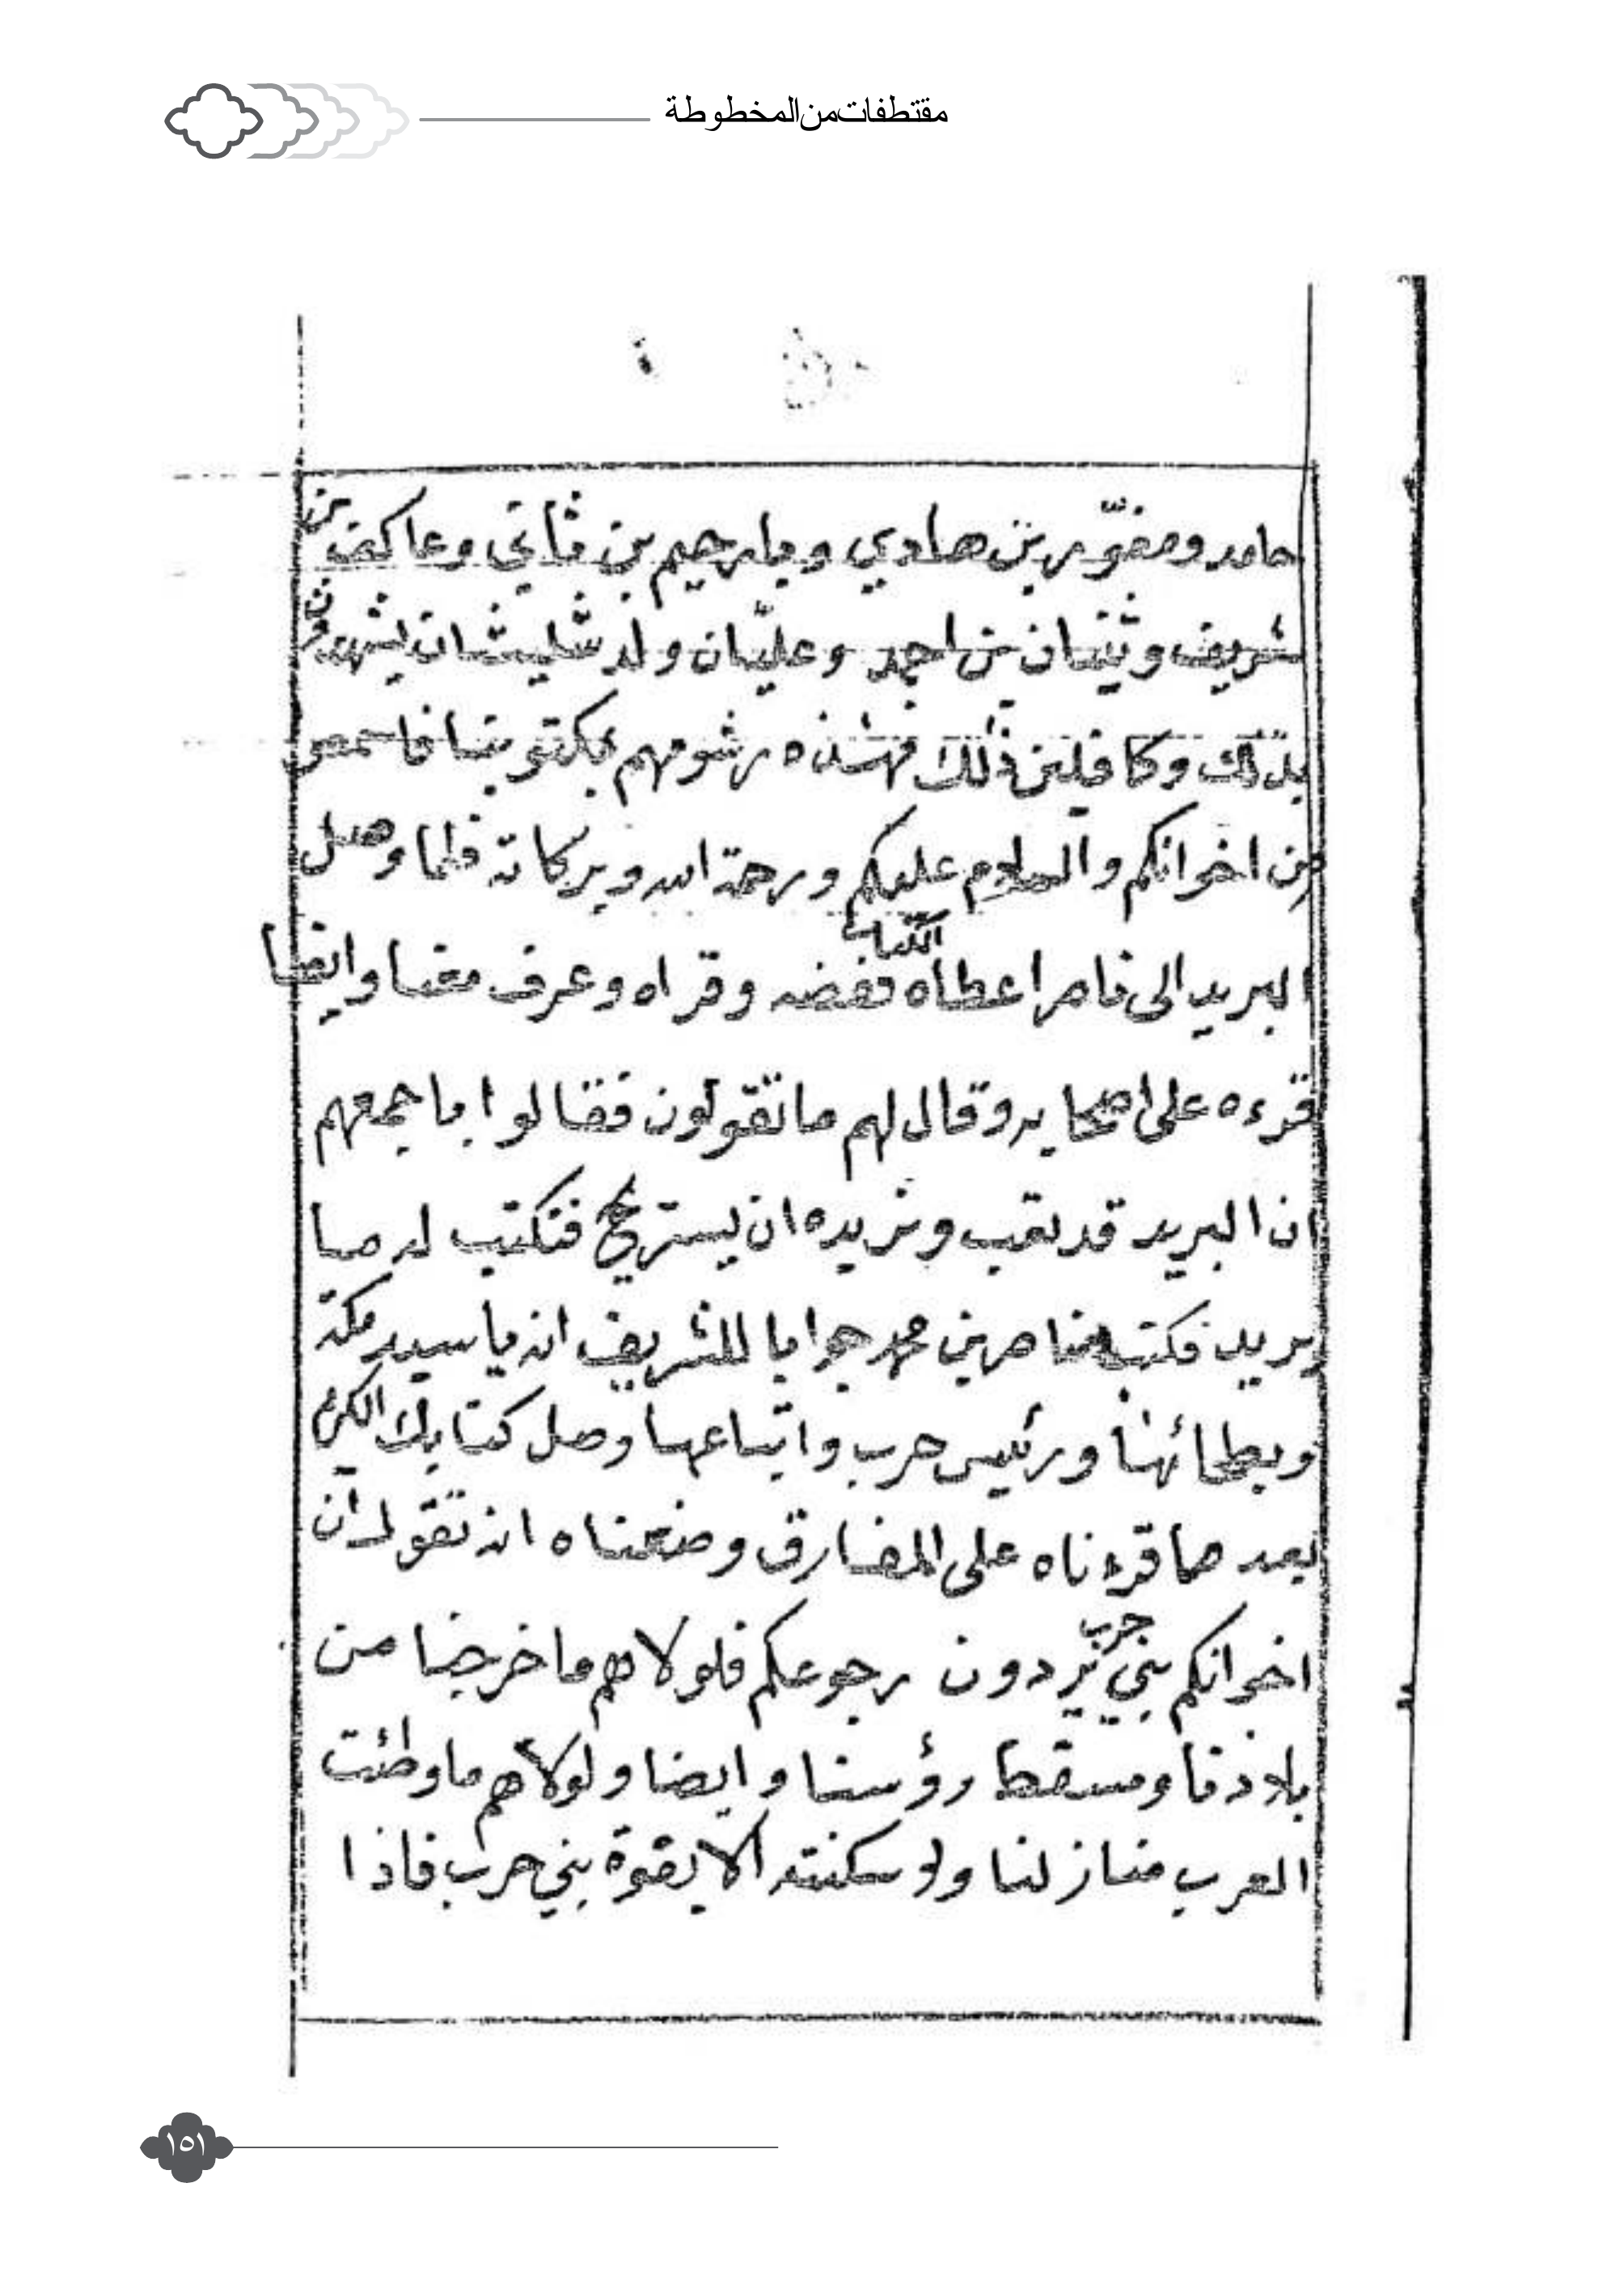 مقتطفات من المخطوطة
حامد ومفوّز بن هادي و بن ثاني وعاكف بن
شريف وثنيان بن احمد وعليّان ولد شليشان
بذلك وكافلين ذلك فهذه رشومهم بمكتوبنا فاسمعو
من اخوانكم والسلام عليكم ورحمة الله وبركاته فلما وصل
البريد الى ناصر اعطاه الكتاب ففضه وقراه وعرف معنا وايضا
قرءه على اصحابه وقال لهم ما تقولون فقالوا باجمعهم
ان البريد قد تعب ونريده ان يستريح فنكتب له ما
يريد فكتب ناصر بن محمد جوابا للشريف انه يا سيد مكة
وبطحائها ورئيس حرب واتباعها وصل كتابك الكريم
بعد ما قرءناه على المفارق وضعناه انه تقول ان
اخوانكم بني حرب يردون رجوعكم فلولاهم ما خرجنا من
بلادنا ومسقط رؤسنا وايضا ولولاهم ما وطئت
العرب منازلنا ولو سكنته الا بقوة بني حرب فاذا
١٥١